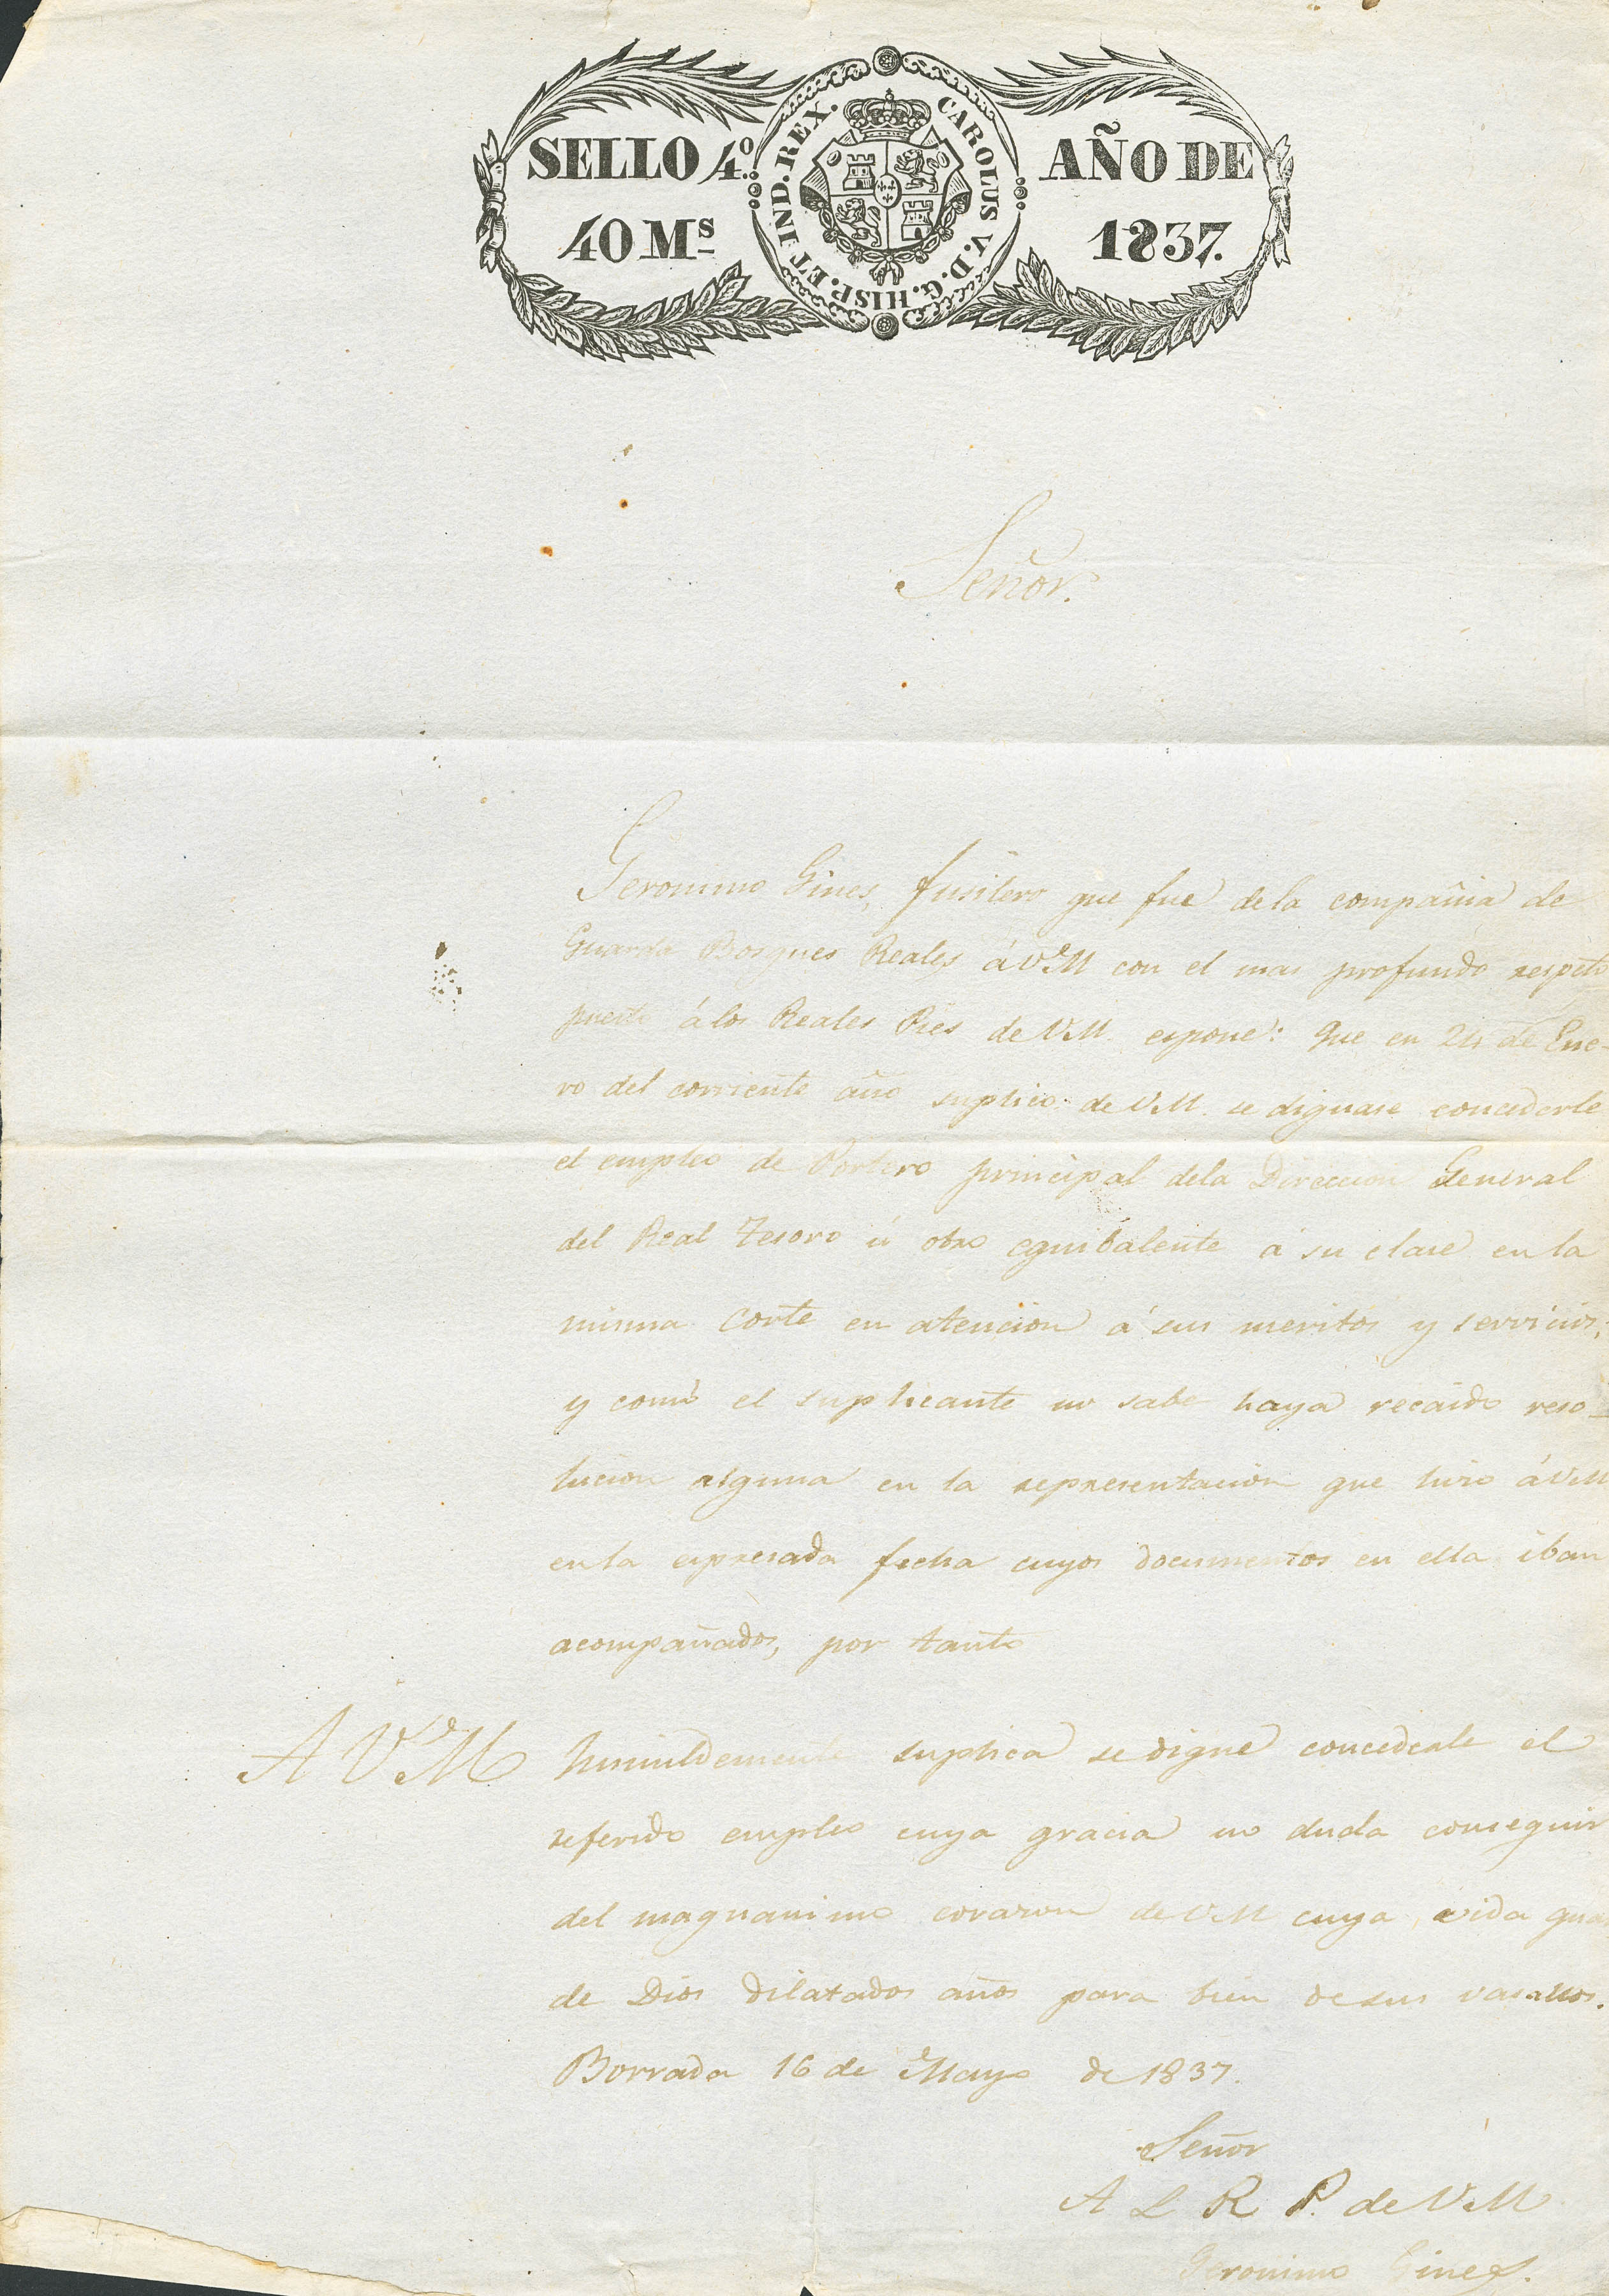 SELLO 4º
40 Mˢ
CAROLUS V. D. G. HISP. ET IND. REX.
AÑO DE
1837.
Señor.
Geronimo Gines, fusilero que fue dela compañia de
Guarda Bosques Reales á V.M con el mas profundo respeto
puesto á los Reales Pies de V.M. espone: Que en 24 de Ene-
ro del corriente año suplicó de V.M. se dignase concederle
el empleo de Portero principal dela Direccion General
del Real Tesoro ú otro equibalente á su clase en la
misma Corte en atencion á sus meritos y servicios,
y como el suplicante no sabe haya recaido reso-
lucion alguna en la representacion que hizo á V.M
en la espresada fecha cuyos documentos en ella iban
acompañados, por tanto
A V.M humildemente suplica se digne concederle el
referido empleo cuya gracia no duda conseguir
del magnanimo corazon de V.M cuya vida guar
de Dios dilatados años para bien de sus vasallos.
Borrada 16 de Mayo de 1837.
Señor
A L R P. de V.M
Geronimo Gines.